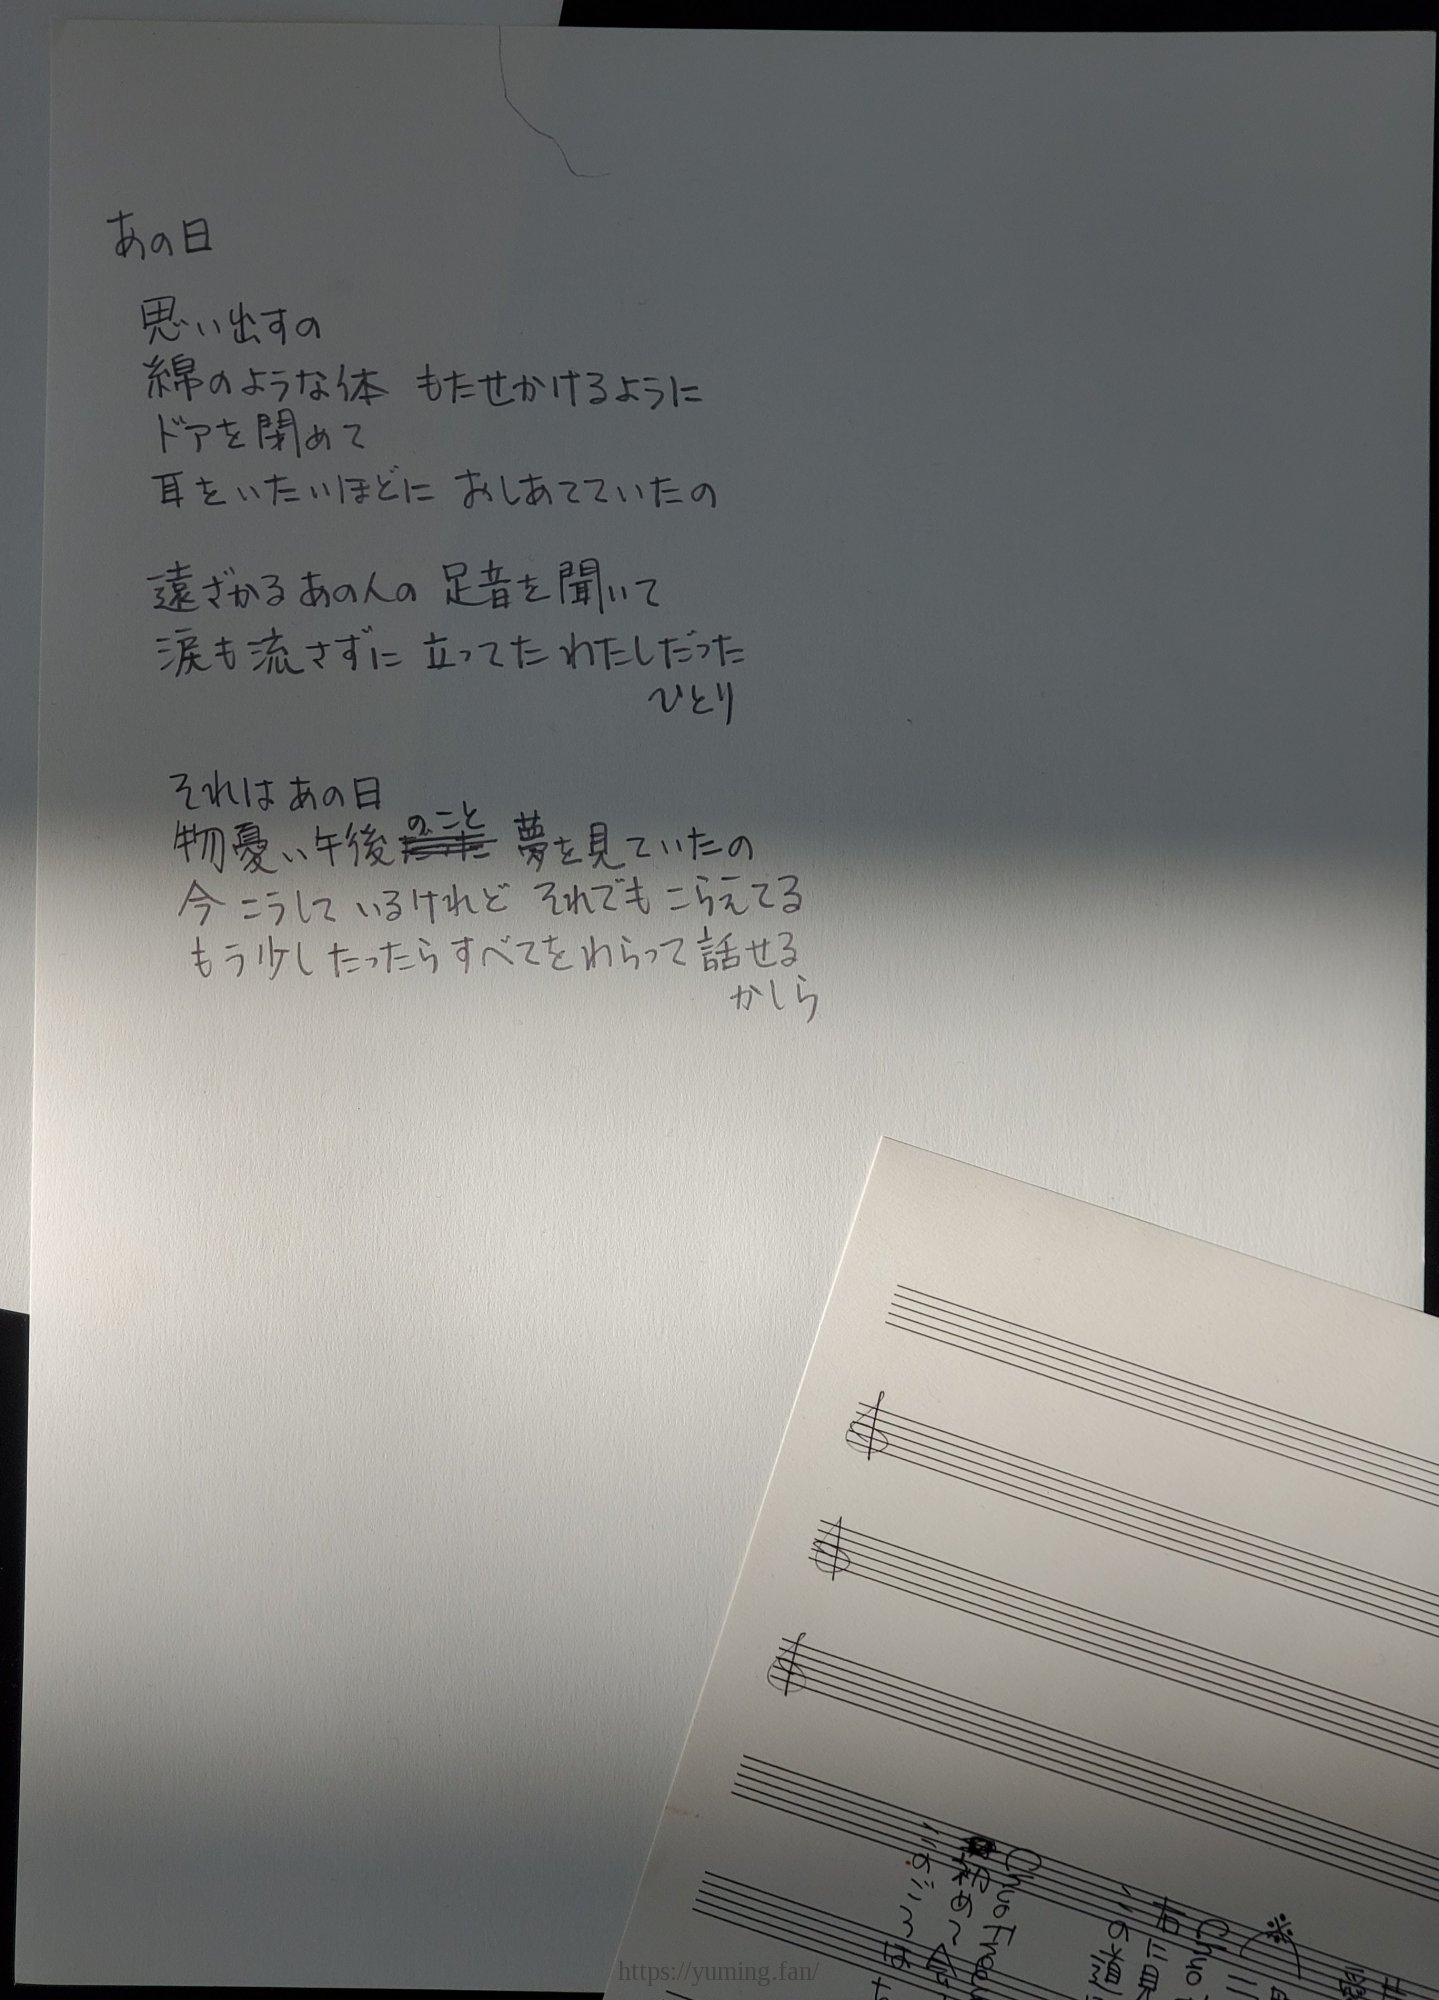 あの日
思い出すの
綿のような体 もたせかけるように
ドアを閉めて
耳をいたいほどに おしあてていたの
遠ざかるあの人の 足音を聞いて
涙も流さずに 立ってた わたしだった
ひとり
それは あの日
のこと
物憂い午後 夢を見ていたの
今 こうして いるけれど それでも こらえてる
もう少し たったら すべてを わらって 話せる
かしら
Chuo Free
Chuo
※
https://yuming.fan/